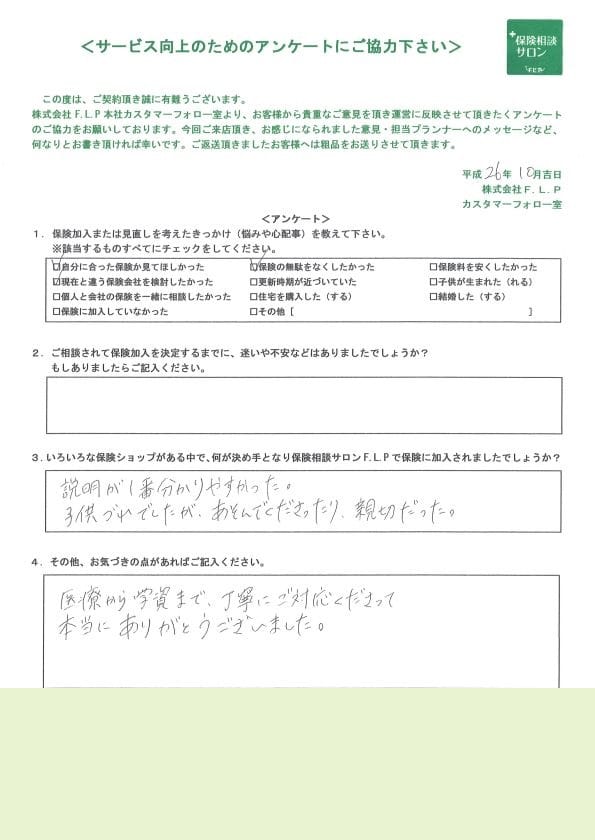 ＜サービス向上のためのアンケートにご協力下さい＞
+保険相談
サロン
この度は、ご契約頂き誠に有難うございます。
株式会社Ｆ.Ｌ.Ｐ本社カスタマーフォロー室より、お客様から貴重なご意見を頂き運営に反映させて頂きたくアンケート
のご協力をお願いしております。今回ご来店頂き、お感じになられました意見・担当プランナーへのメッセージなど、
何なりとお書き頂ければ幸いです。ご返送頂きましたお客様へは粗品をお送りさせて頂きます。
平成26年10月吉日
株式会社Ｆ.Ｌ.Ｐ
カスタマーフォロー室
＜アンケート＞
１．保険加入または見直しを考えたきっかけ（悩みや心配事）を教えて下さい。
※該当するものすべてにチェックをしてください。
☑自分に合った保険か見てほしかった ☑保険の無駄をなくしたかった □保険料を安くしたかった
☑現在と違う保険会社を検討したかった □更新時期が近づいていた □子供が生まれた（れる）
□個人と会社の保険を一緒に相談したかった □住宅を購入した（する） □結婚した（する）
□保険に加入していなかった □その他［ ］
２．ご相談されて保険加入を決定するまでに、迷いや不安などはありましたでしょうか？
もしありましたらご記入ください。
３.いろいろな保険ショップがある中で、何が決め手となり保険相談サロンＦ.Ｌ.Ｐで保険に加入されましたでしょうか？
説明が1番分かりやすかった。
子供づれでしたが、あそんでくださったり、親切だった。
４．その他、お気づきの点があればご記入ください。
医療から学資まで、丁寧にご対応くださって
本当にありがとうございました。